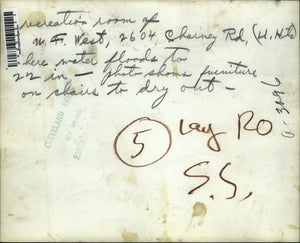 recreation room of
W. F. West, 2604 Charney Rd, (U. Hts)
here water floods to
22 in — photo shows furniture
on chairs to dry out —
CLEVELAND
5
Lay RO
S.S.